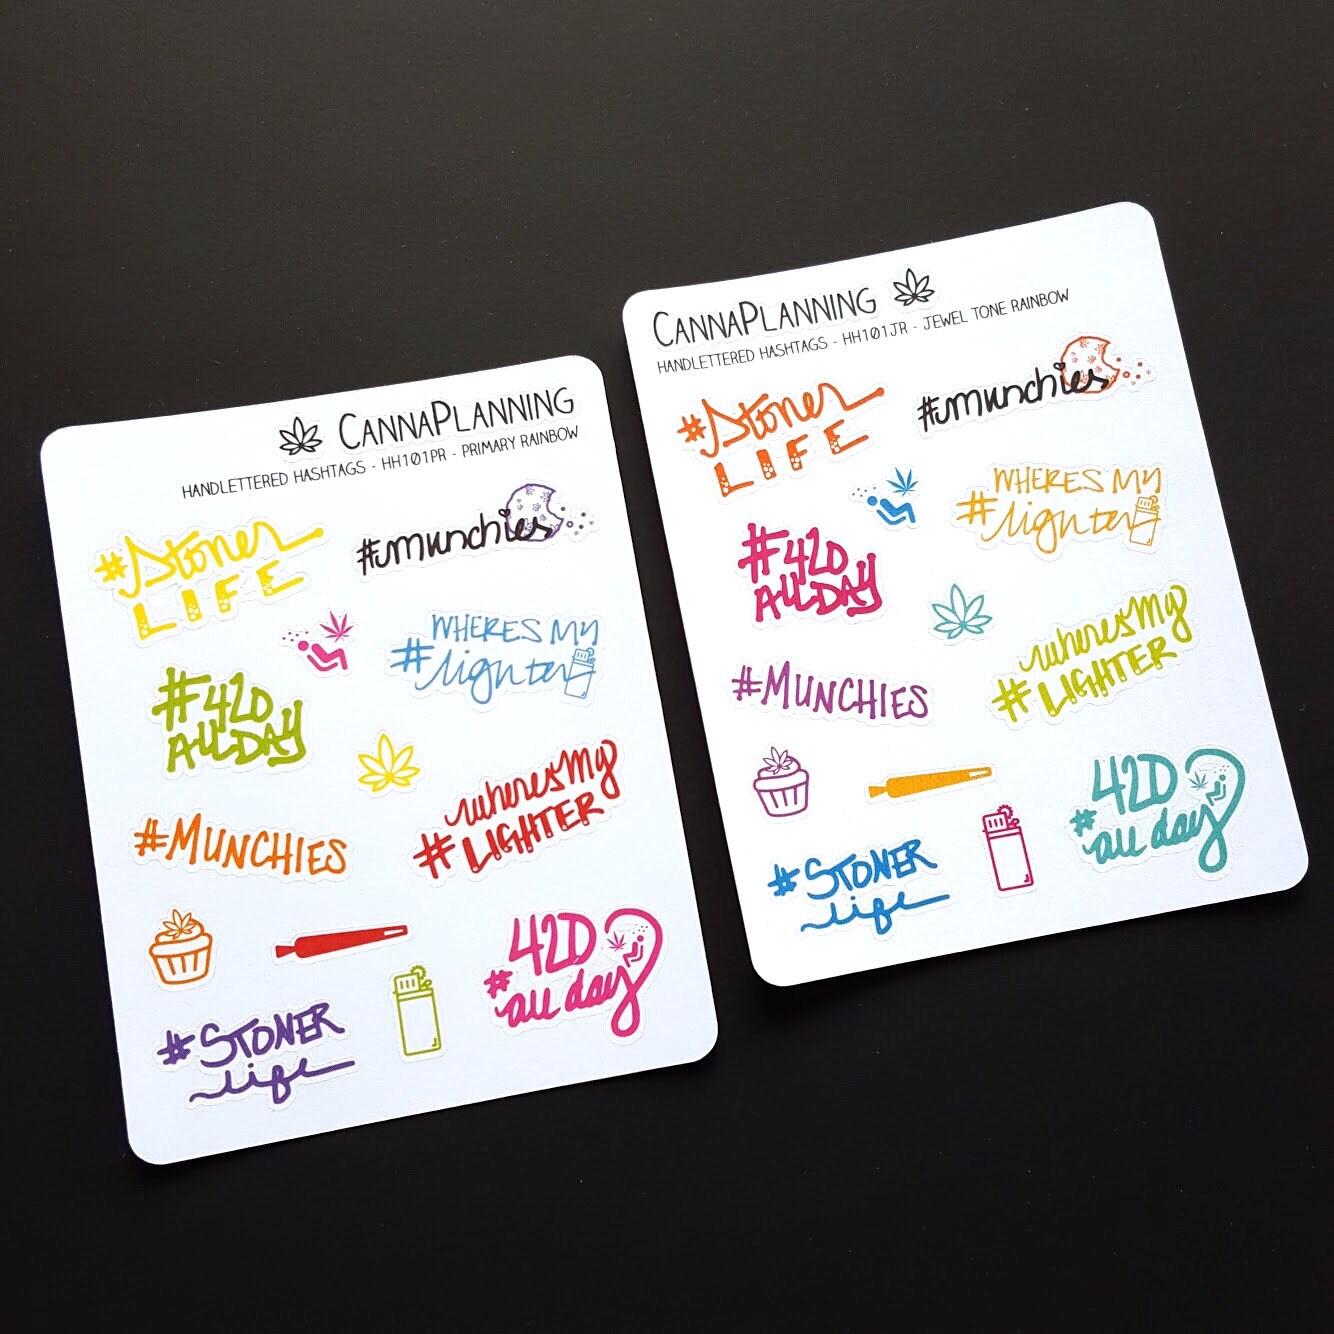 CANNAPLANNING
HANDLETTERED HASHTAGS - HH101PR - PRIMARY RAINBOW
#Stoner
LIFE
#munchies
WHERES MY
#lighter
#420
ALLDAY
wheres my
#LIGHTER
#MUNCHIES
420
#all day
#STONER
life
CANNAPLANNING
HANDLETTERED HASHTAGS - HH101JR - JEWEL TONE RAINBOW
#Stoner
LIFE
#munchies
WHERES MY
#lighter
#420
ALLDAY
wheres my
#LIGHTER
#MUNCHIES
420
#all day
#STONER
life